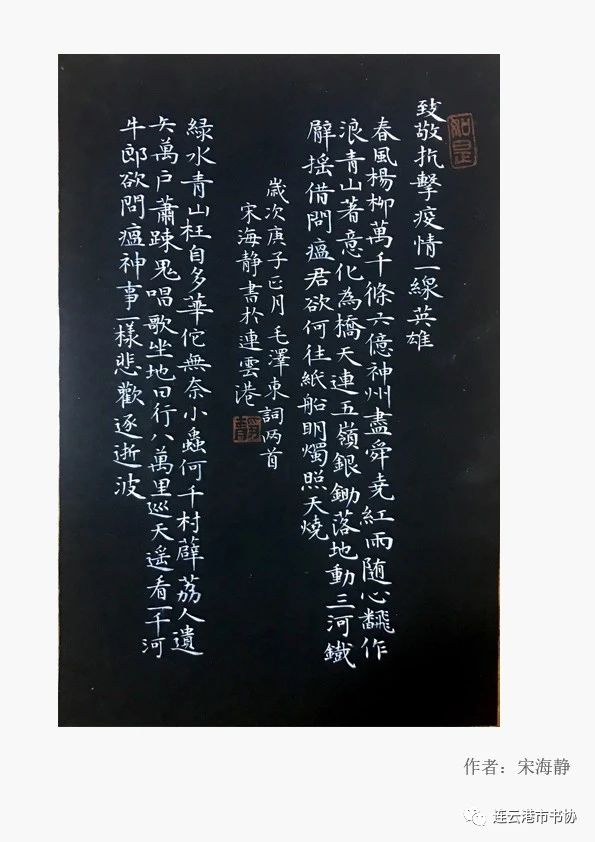 如是
致敬抗擊疫情一線英雄
春風楊柳萬千條六億神州盡舜堯紅雨随心翻作
浪青山著意化為橋天連五嶺銀鋤落地動三河鐵
臂摇借問瘟君欲何往紙船眀燭照天燒
歲次庚子正月毛澤東詞两首
宋海静書於連雲港
緑水青山枉自多華佗無奈小蟲何千村薜荔人遺
矢萬户蕭踈鬼唱歌坐地日行八萬里巡天遥看一千河
牛郎欲問瘟神事一樣悲歡逐逝波
作者：宋海静
连云港市书协